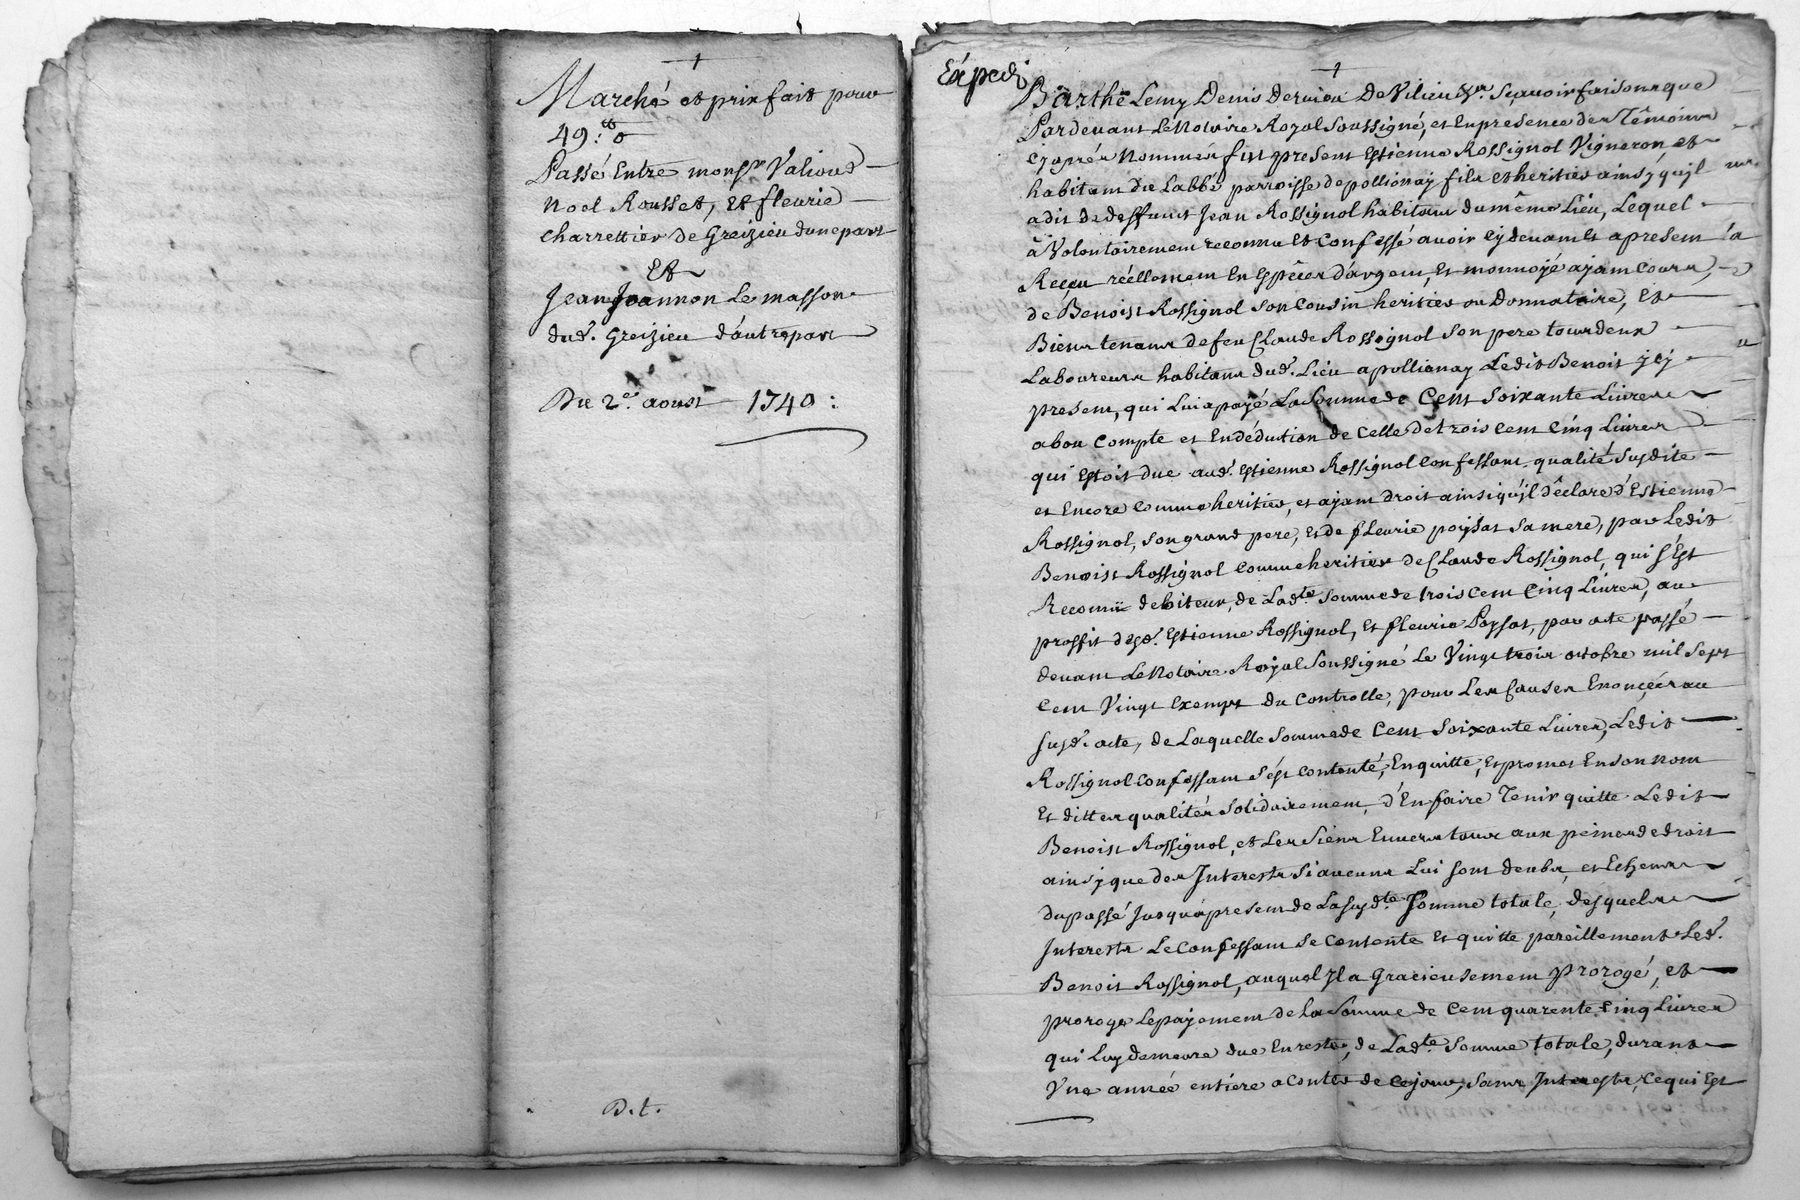 Marché et prix fait pour
49:
Passé Entre monsr Valious
Noel Rousset, Et fleurie
Charrettier de Greizieu dune part
Et
Jean Joannon Le masson
dud. Greizieu d'autre part
Du 2e aoust 1740:
D.t.
Expedi
Barthelemy Denis De Vilieu &r. Sçavoir faisons que
Pardevant Le Notaire Royal Soussigné, et En presence des Têmoins
cy aprés Nommés fut present Estienne Rossignol Vigneron et
habitant du Labbé parroisse de pollionay fils et heritier ainsy qu'jl
a dit de deffunt Jean Rossignol habitant du même Lieu, Lequel
à Volontairement reconnu Et Confessé avoir cy devant Et a present
Reçeu réellement En Espéces d'argent, Et monnoyé ajant Cours,
de Benoist Rossignol Son Cousin heritier ou Donnataire, Et
Biens tenans de feu Claude Rossignol Son pere tous deux
Laboureurs habitans dud. Lieu a pollionay Ledit Benoit jcj
present, qui Lui a payé La Somme de Cent Soixante Livres
a bon Compte et En déduction de Celle de trois Cent Cinq Livres
qui Estoit due aud. Estienne Rossignol Confessant, qualité Susdite
et Encore Comme heritier, et ajant droit ainsi qu'jl déclare d'Estienne
Rossignol, Son grand pere, Et de fleurie poysat Sa mere, par Ledit
Benoist Rossignol Comme heritier de Claude Rossignol, qui s'Est
Reconnü debiteur, de Ladte Somme de trois Cent Cinq Livres, au
proffit desd. Estienne Rossignol, Et fleurie Poysat, par acte passé
devant Le Notaire Royal Soussigné Le Vingt trois octobre mil Sept
Cent Vingt Exempt du Controlle, pour Les Causes Enoncées au
susd. acte, de Laquelle Somme de Cent Soixante Livres, Ledit
Rossignol Confessant s'est Contenté, En quitte, Et promet En Son nom
Et dittes qualités Solidairement, d'En faire Tenir quitte Ledit
Benoist Rossignol, et Les Siens Envers tous aux peines de droit
ainsy que des Interests Si aucuns Lui Sont deubs, et Echeus
du passé Jusqu'à present de La susdte Somme totale, desquels
Interests Le Confessant Se Contente Et quitte pareillement Led.
Benoit Rossignol, auquel Jl a Gracieusement prorogé, et
proroge Le payement de La Somme de Cent quarente Cinq Livres
qui Luy demeure due En reste, de Ladte Somme totale, durant
Vne année entiere a Conter de Ce jour, Sans Interests, Ce qui Est